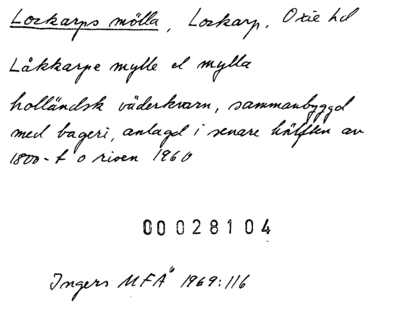 Lockarps mölla, Lockarp, Oxie hd
Låkkarpe mylle el mylla
holländsk väderkvarn, sammanbyggd
med bageri, anlagd i senare hälften av
1800-t o riven 1960
00028104
Ingers MFÅ 1969:116